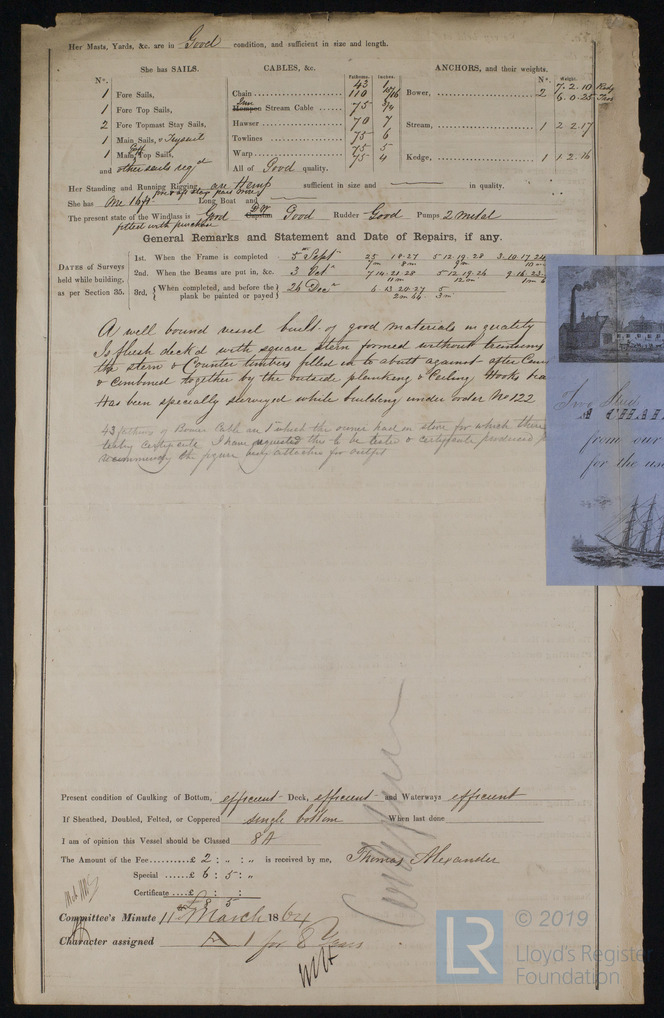 Her Masts, Yards, &c. are in Good condition, and sufficient in size and length.
She has SAILS.
No.
1 Fore Sails,
1 Fore Top Sails,
2 Fore Topmast Stay Sails,
1 Main Sails, & Trysail
1 Main Top Sails,
and other sails reqd
CABLES, &c.
Fathoms. Inches.
Chain 43 1
110 15/16
Stream Cable 75 3/4
Hawser 70 7
Towlines 75 6
Warp 75 5
75 4
All of Good quality.
ANCHORS, and their weights.
No. Weight.
Bower, 2 7.2.10
6.0.25
Stream, 1 2.2.17
Kedge, 1 1.2.16
Her Standing and Running Rigging are Hemp sufficient in size and in quality.
She has One 16 ft Long Boat and
The present state of the Windlass is Good Capstan Good Rudder Good Pumps 2 Metal
fitted with purchase
General Remarks and Statement and Date of Repairs, if any.
DATES of Surveys held while building, as per Section 35.
1st. When the Frame is completed 5th Sept 25 18.27 5 12.19.28 3.10.17.24
2nd. When the Beams are put in, &c. 3 Octr 7 14.21.28 5 12.19.26 9.16.23
3rd. When completed, and before the plank be painted or payed 24 Decr 6 13 20.27 5
A well bound vessel built of good materials in quality
Is flush deck'd with square stern formed without transoms
the stern & Counter timbers filled in to abutt against after
& combined together by the outside planking & Ceiling Hooks
Has been specially surveyed while building under order No 122
43 fathoms of Bower Cable an 1 which the owner had in store for which
testing certificate I have requested this to be tested & certificate produced
recommending the figure being attached for outfit
Present condition of Caulking of Bottom, efficient Deck, efficient and Waterways efficient
If Sheathed, Doubled, Felted, or Coppered single bottom When last done
I am of opinion this Vessel should be Classed 8A
The Amount of the Fee £ 2 : „ : „ is received by me, Thomas Alexander
Special £ 6 : 5 : „
Certificate £ : :
£ 8 5
Committee's Minute 11 March 1864
Character assigned A 1 for 8 Years
from our
for the use
LR
© 2019
Lloyd's Register
Foundation